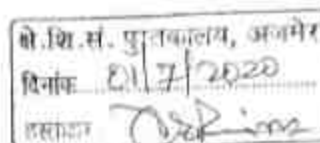 क्षे.शि.सं. पुस्तकालय, अजमेर
दिनांक 01/7/2020
हस्ताक्षर